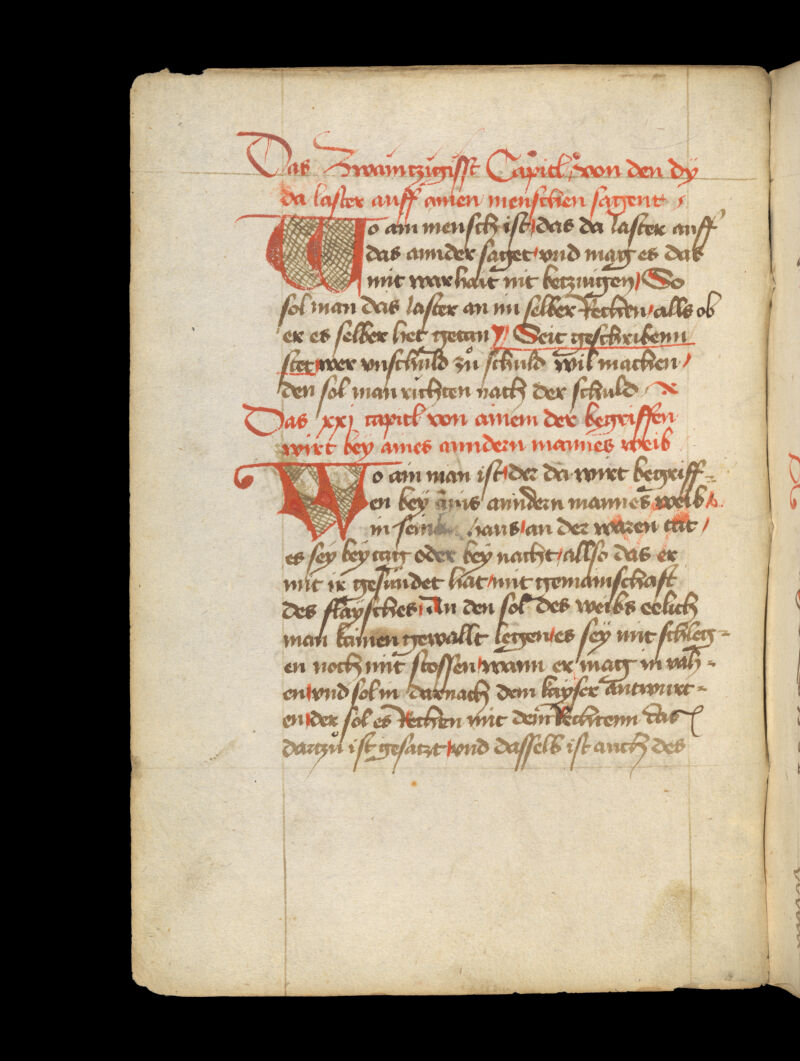 Das Zwaintzigisst Capitl von den dy
da laster auff ainen menschen sagent
Wo ain mensch ist das da laster auff
das annder saget vnd mag es das
mit warhait nit betzuigen So
sol man das laster an im selber Rechen alls ob
er es selber het getan Seit geschribenn
stet wer vnschuld zů schuld wil machen
den sol man richten nach der schuld
Das xxj capitl von ainem der begriffen
wirt bey aines anndern mannes weib
Wo ain man ist der da wirt begriff=
en bey ains anndern mannes weib
in seinem haus an der waren tat
es sey bey tag oder bey nacht allso das er
mit ir gesündet hat mit gemainschaft
des flaysches An den sol des weibs eelich
man kainen gewallt legen es sey mit schleg=
en noch mit stossen wann er mag in vah=
en vnd sol in darnach dem kayser antwurt=
en der sol es Rechen mit dem Rechtenn das
dartzů ist gesatzt vnd dasselb ist auch des